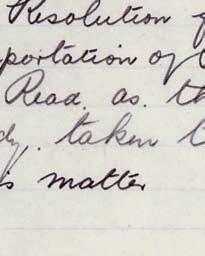 Resolution
portation of
Read. as. th
dy. taken t
s matter